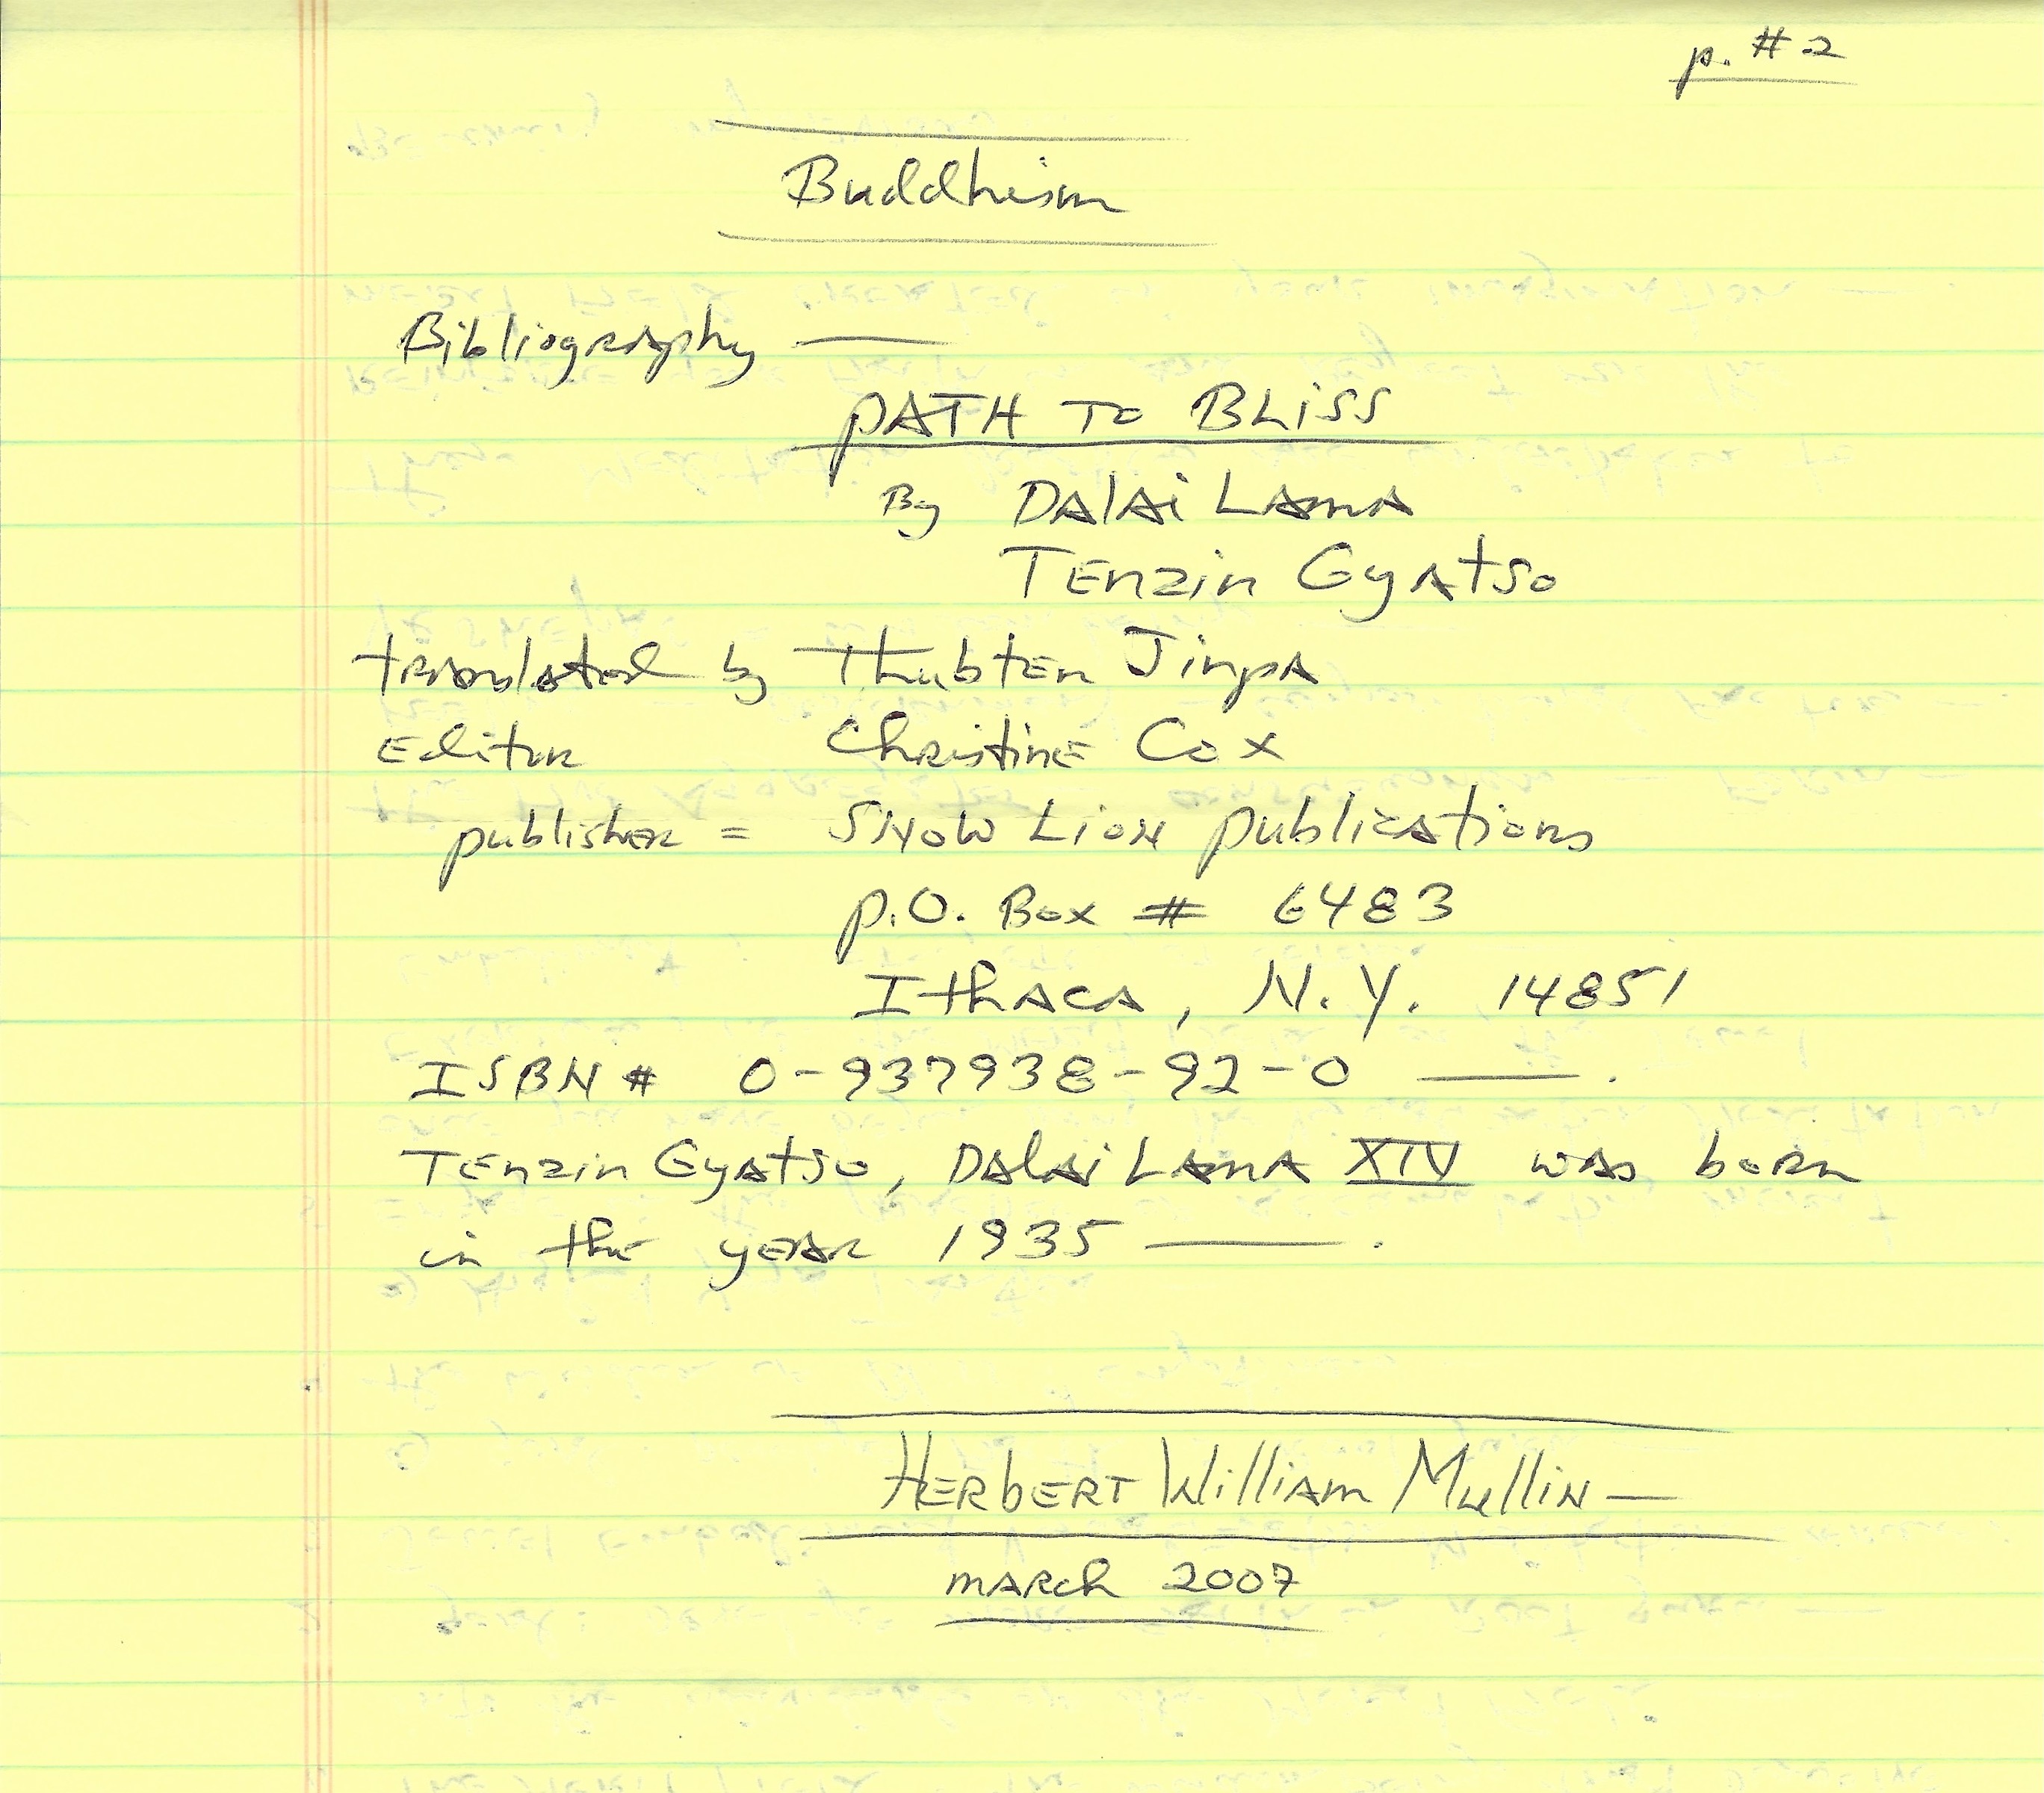 p. #2
Buddhism
Bibliography —
PATH TO BLiSS
By DAlAi LAmA
TEnzin GyAtso
translated by Thubten JinpA
Editor Christine Cox
publisher = SNOW LiON publications
P.O. Box # 6483
IthACA, N.Y. 14851
ISBN # 0-937938-92-0 —.
TEnzin GyAtso, DAlAi LAmA XIV was born
in the year 1935 —.
HERbERT William Mullin —
MARch 2007